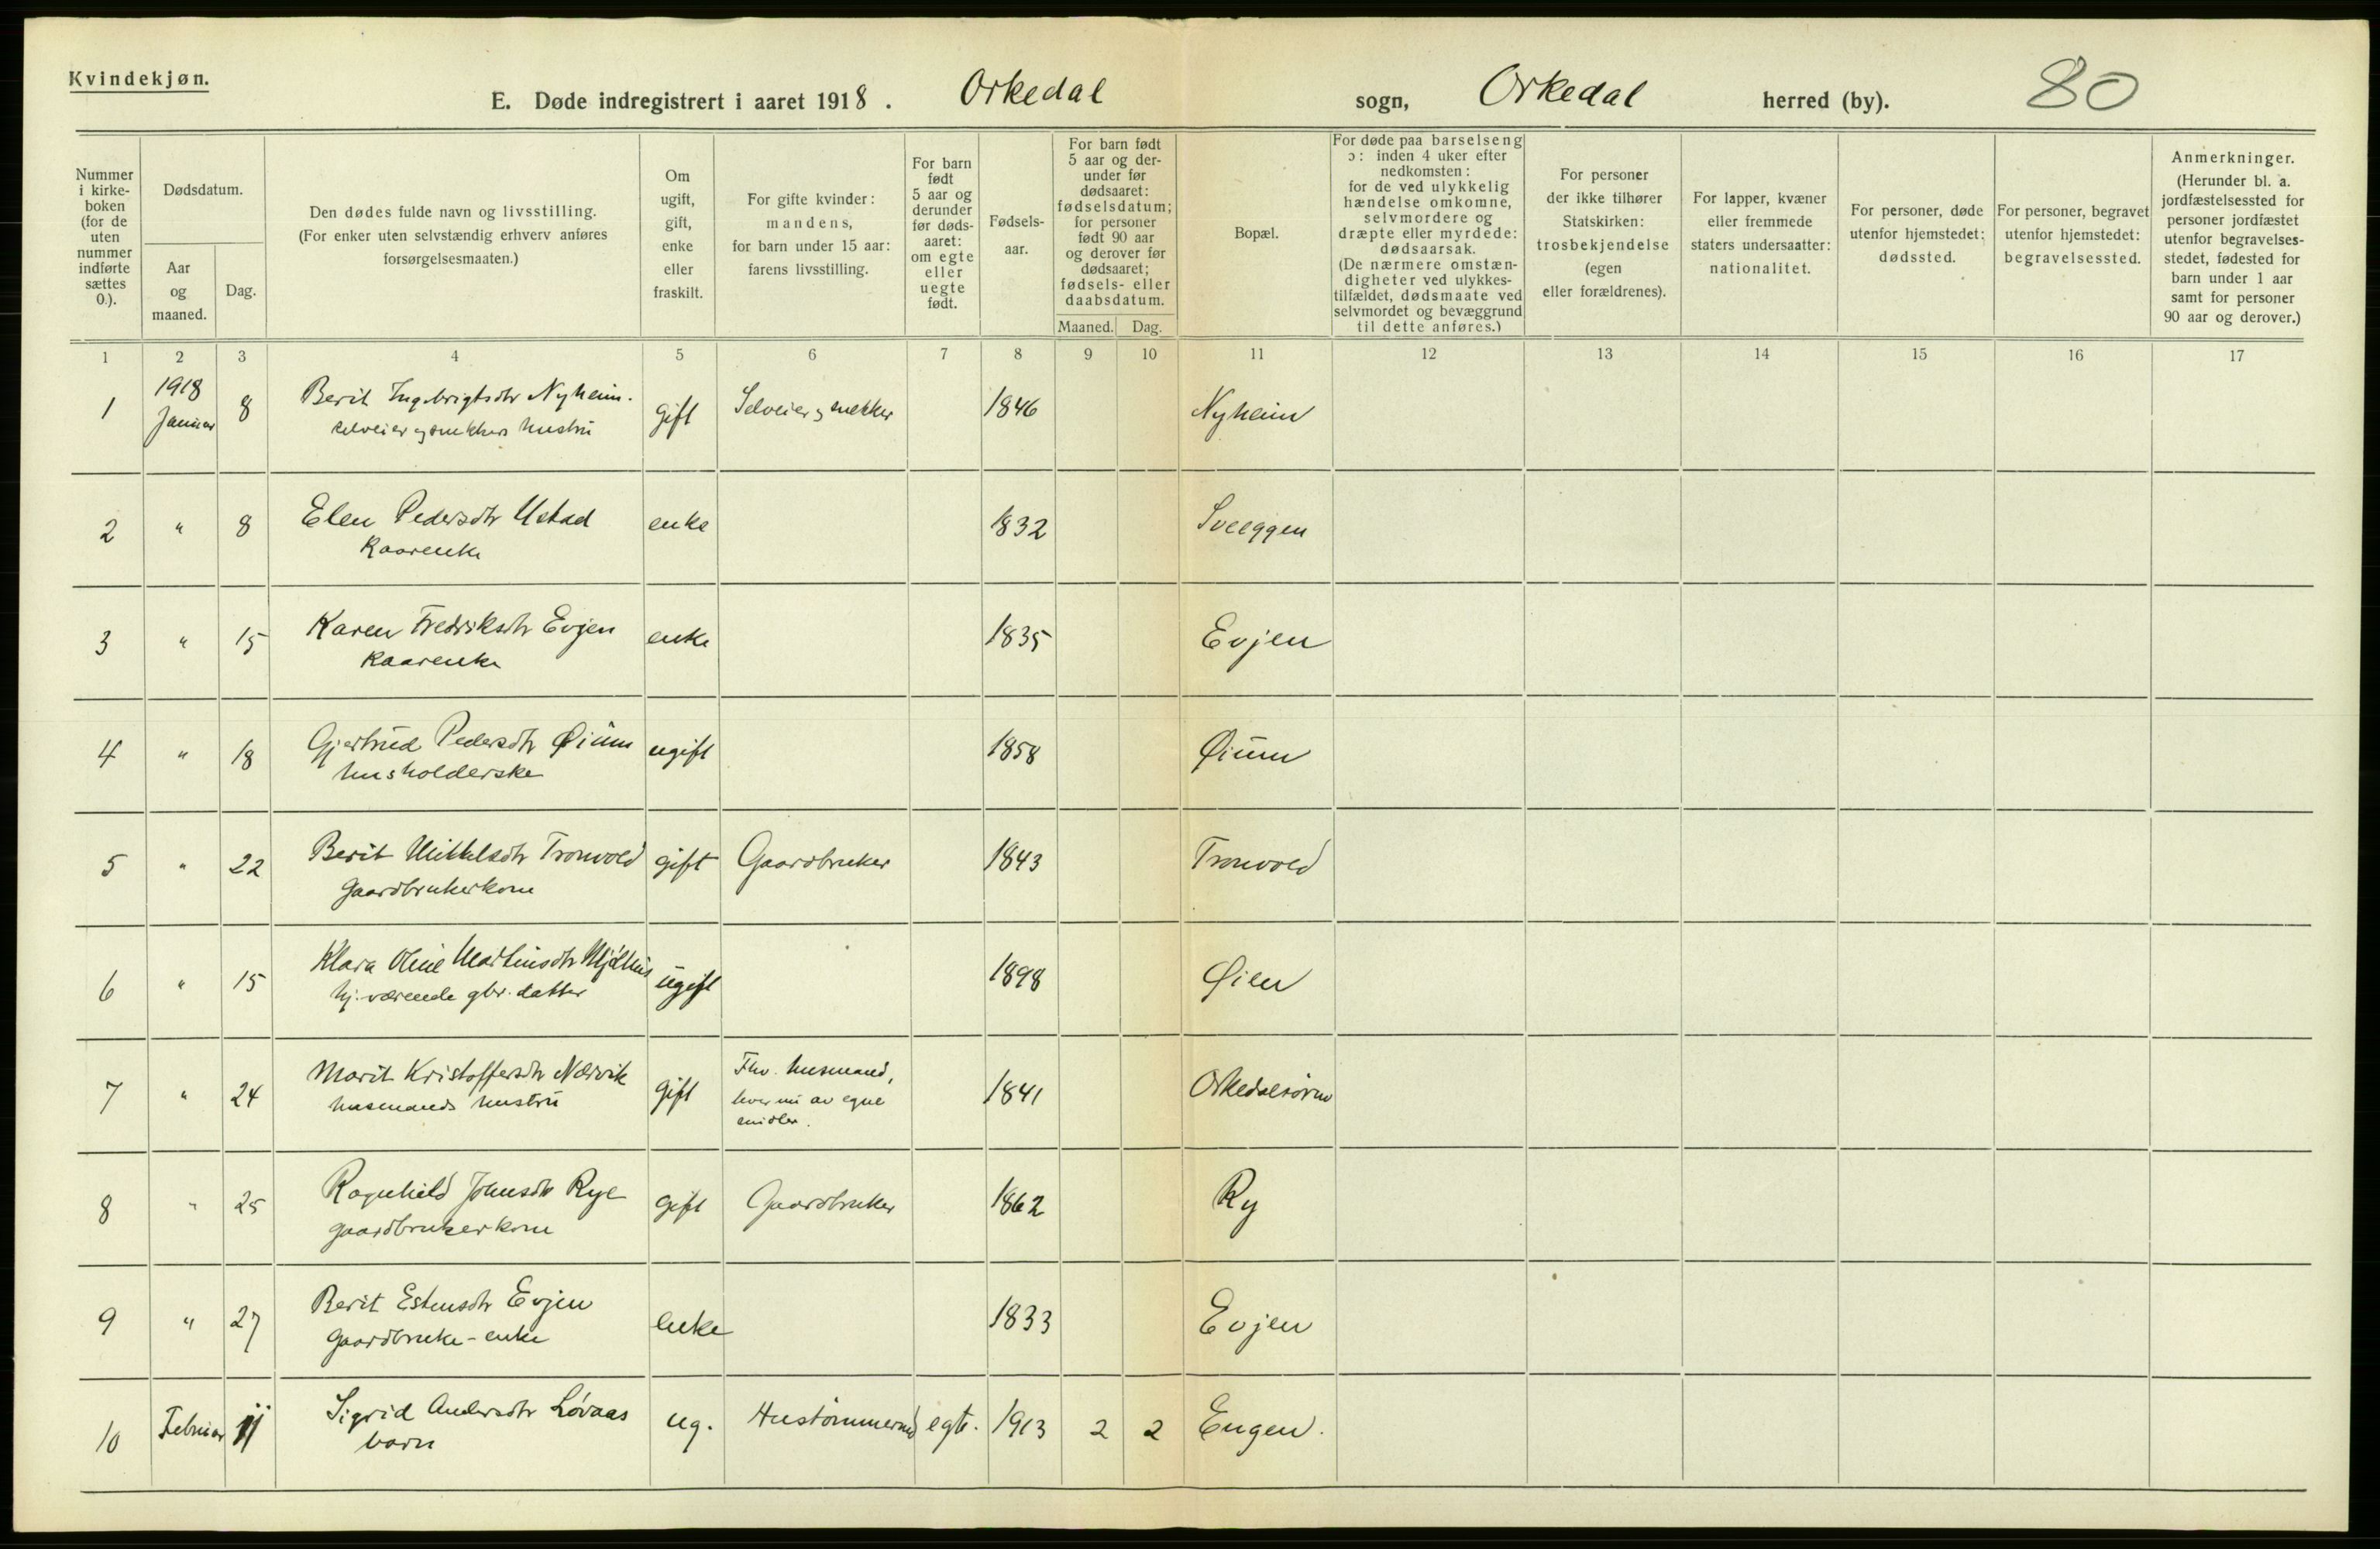 Kvindekjøn.
E. Døde indregistrert i aaret 1918. Orkedal sogn, Orkedal herred (by). 80
Nummer i kirke-boken (for de uten nummer indførte sættes 0.).
Dødsdatum.
Aar og maaned.
Dag.
Den dødes fulde navn og livsstilling.
(For enker uten selvstændig erhverv anføres
forsørgelsesmaaten.)
Om ugift, gift, enke eller fraskilt.
For gifte kvinder:
mandens,
for barn under 15 aar:
farens livsstilling.
For barn født 5 aar og derunder før døds-aaret: om egte eller uegte født.
Fødsels-aar.
For barn født 5 aar og der-under før dødsaaret: fødselsdatum; for personer født 90 aar og derover før dødsaaret; fødsels- eller daabsdatum.
Maaned. Dag.
Bopæl.
For døde paa barselseng
ɔ: inden 4 uker efter
nedkomsten:
for de ved ulykkelig
hændelse omkomne,
selvmordere og
dræpte eller myrdede:
dødsaarsak.
(De nærmere omstæn-
digheter ved ulykkes-
tilfældet, dødsmaate ved
selvmordet og bevæggrund
til dette anføres.)
For personer
der ikke tilhører
Statskirken:
trosbekjendelse
(egen
eller forældrenes).
For lapper, kvæner
eller fremmede
staters undersaatter:
nationalitet.
For personer, døde
utenfor hjemstedet:
dødssted.
For personer, begravet
utenfor hjemstedet:
begravelsessted.
Anmerkninger.
(Herunder bl. a.
jordfæstelsessted for
personer jordfæstet
utenfor begravelses-
stedet, fødested for
barn under 1 aar
samt for personer
90 aar og derover.)
1 2 3 4 5 6 7 8 9 10 11 12 13 14 15 16 17
1 1918 Januar 8 Berit Ingebrigtsdtr Nyheim. gift Selveier og snekker 1846 Nyheim
selveier og snekkers hustru
2 " 8 Elen Pedersdtr Ustad enke 1832 Sveeggen
Kaarenke
3 " 15 Karen Fredriksdtr Evjen enke 1835 Evjen
Kaarenke
4 " 18 Gjertrud Pedersdtr Øium ugift 1858 Øium
husholderske
5 " 22 Berit Mikkelsdtr Tronvold gift Gaardbruker 1843 Tronvold
Gaardbrukerkone
6 " 15 Klara Oline Martinsdtr ugift 1898 Øien
hj. værende gbr. datter
7 " 24 Marit Kristoffersdtr Nærvik gift Fhv. husmand, 1841 Orkedalsøren
husmands hustru
lever nu av egne
midler.
8 " 25 Ragnhild Johnsdtr Rye gift Gaardbruker 1862 Ry
gaardbrukerkone
9 " 27 Berit Estensdtr Evjen enke 1833 Evjen
Gaardbruke-enke
10 Februar 11 Sigrid Andersdtr Løvaas ug. Hustømmermd egte. 1913 2 2 Engen.
barn